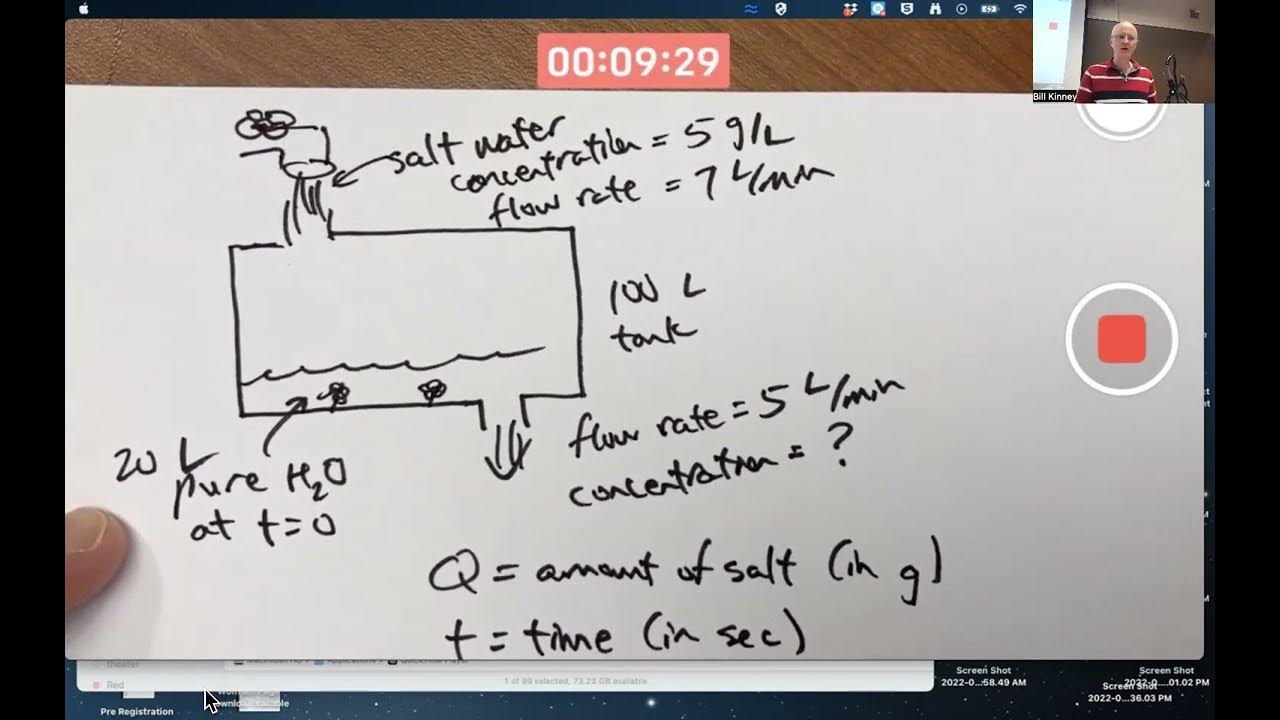 00:09:29
Bill Kinney
salt water
concentration = 5 g/L
flow rate = 7 L/min
100 L
tank
flow rate = 5 L/min
concentration = ?
20 L
pure H₂O
at t=0
Q = amount of salt (in g)
t = time (in sec)
theater
Red
1 of 99 selected, 73.23 GB available
Pre Registration
Screen Shot
2022-0...58.49 AM
Screen Shot
2022-0...01.02 PM
Screen Shot
2022-0...36.03 PM